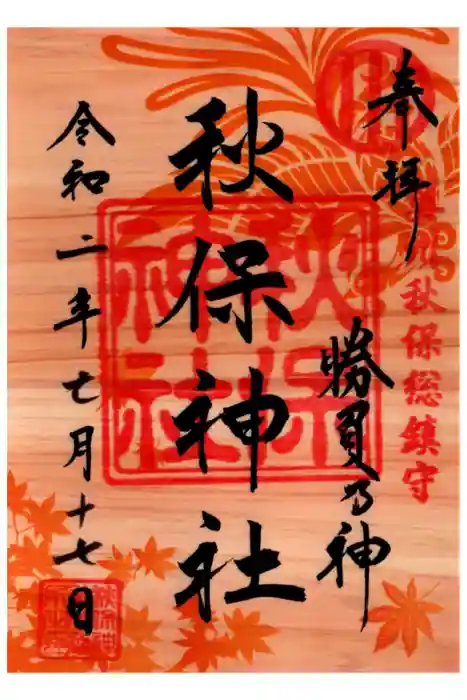 奉拝
秋保総鎮守
勝負乃神
秋保神社
秋保神社
令和二年七月十七日